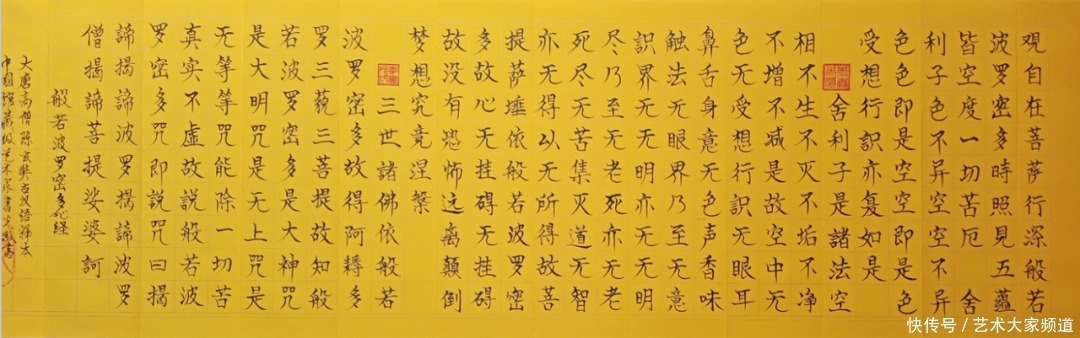 观自在菩萨行深般若
波罗密多時照見五蘊
皆空度一切苦厄 舍
利子色不异空空不异
色色即是空空即是色
受想行識亦复如是
舍利子是諸法空
相不生不灭不垢不净
不增不减是故空中无
色无受想行識无眼耳
鼻舌身意无色声香味
触法无眼界乃至无意
識界无无明亦无无明
尽乃至无老死亦无老
死尽无苦集灭道无智
亦无得以无所得故菩
提萨埵依般若波罗密
多故心无挂碍无挂碍
故没有恐怖远离颠倒
梦想究竟涅槃
三世諸佛依般若
波罗密多故得阿耨多
罗三藐三菩提故知般
若波罗密多是大神咒
是大明咒是无上咒是
无等等咒能除一切苦
真实不虚故説般若波
罗密多咒即説咒曰揭
諦揭諦波罗揭諦波罗
僧揭諦菩提娑婆訶
般若波罗密多心经
大唐高僧陈玄奘古汉语译
中国
快传号/艺术大家频道